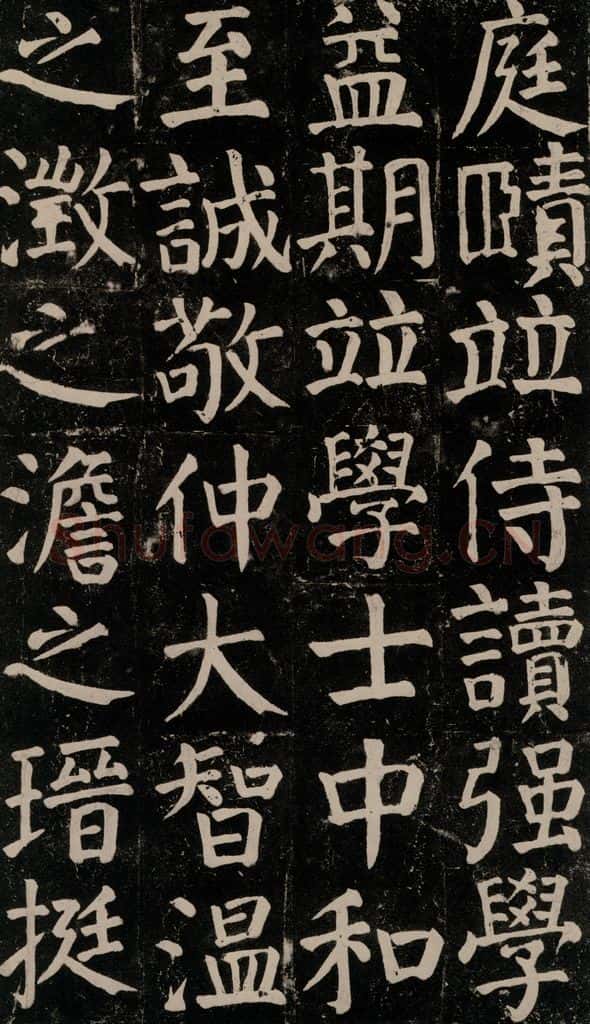 庭賾竝侍讀强學
益期竝學士中和
至誠敬仲大智温
之澂之澹之瑨挺
shufawang.cn